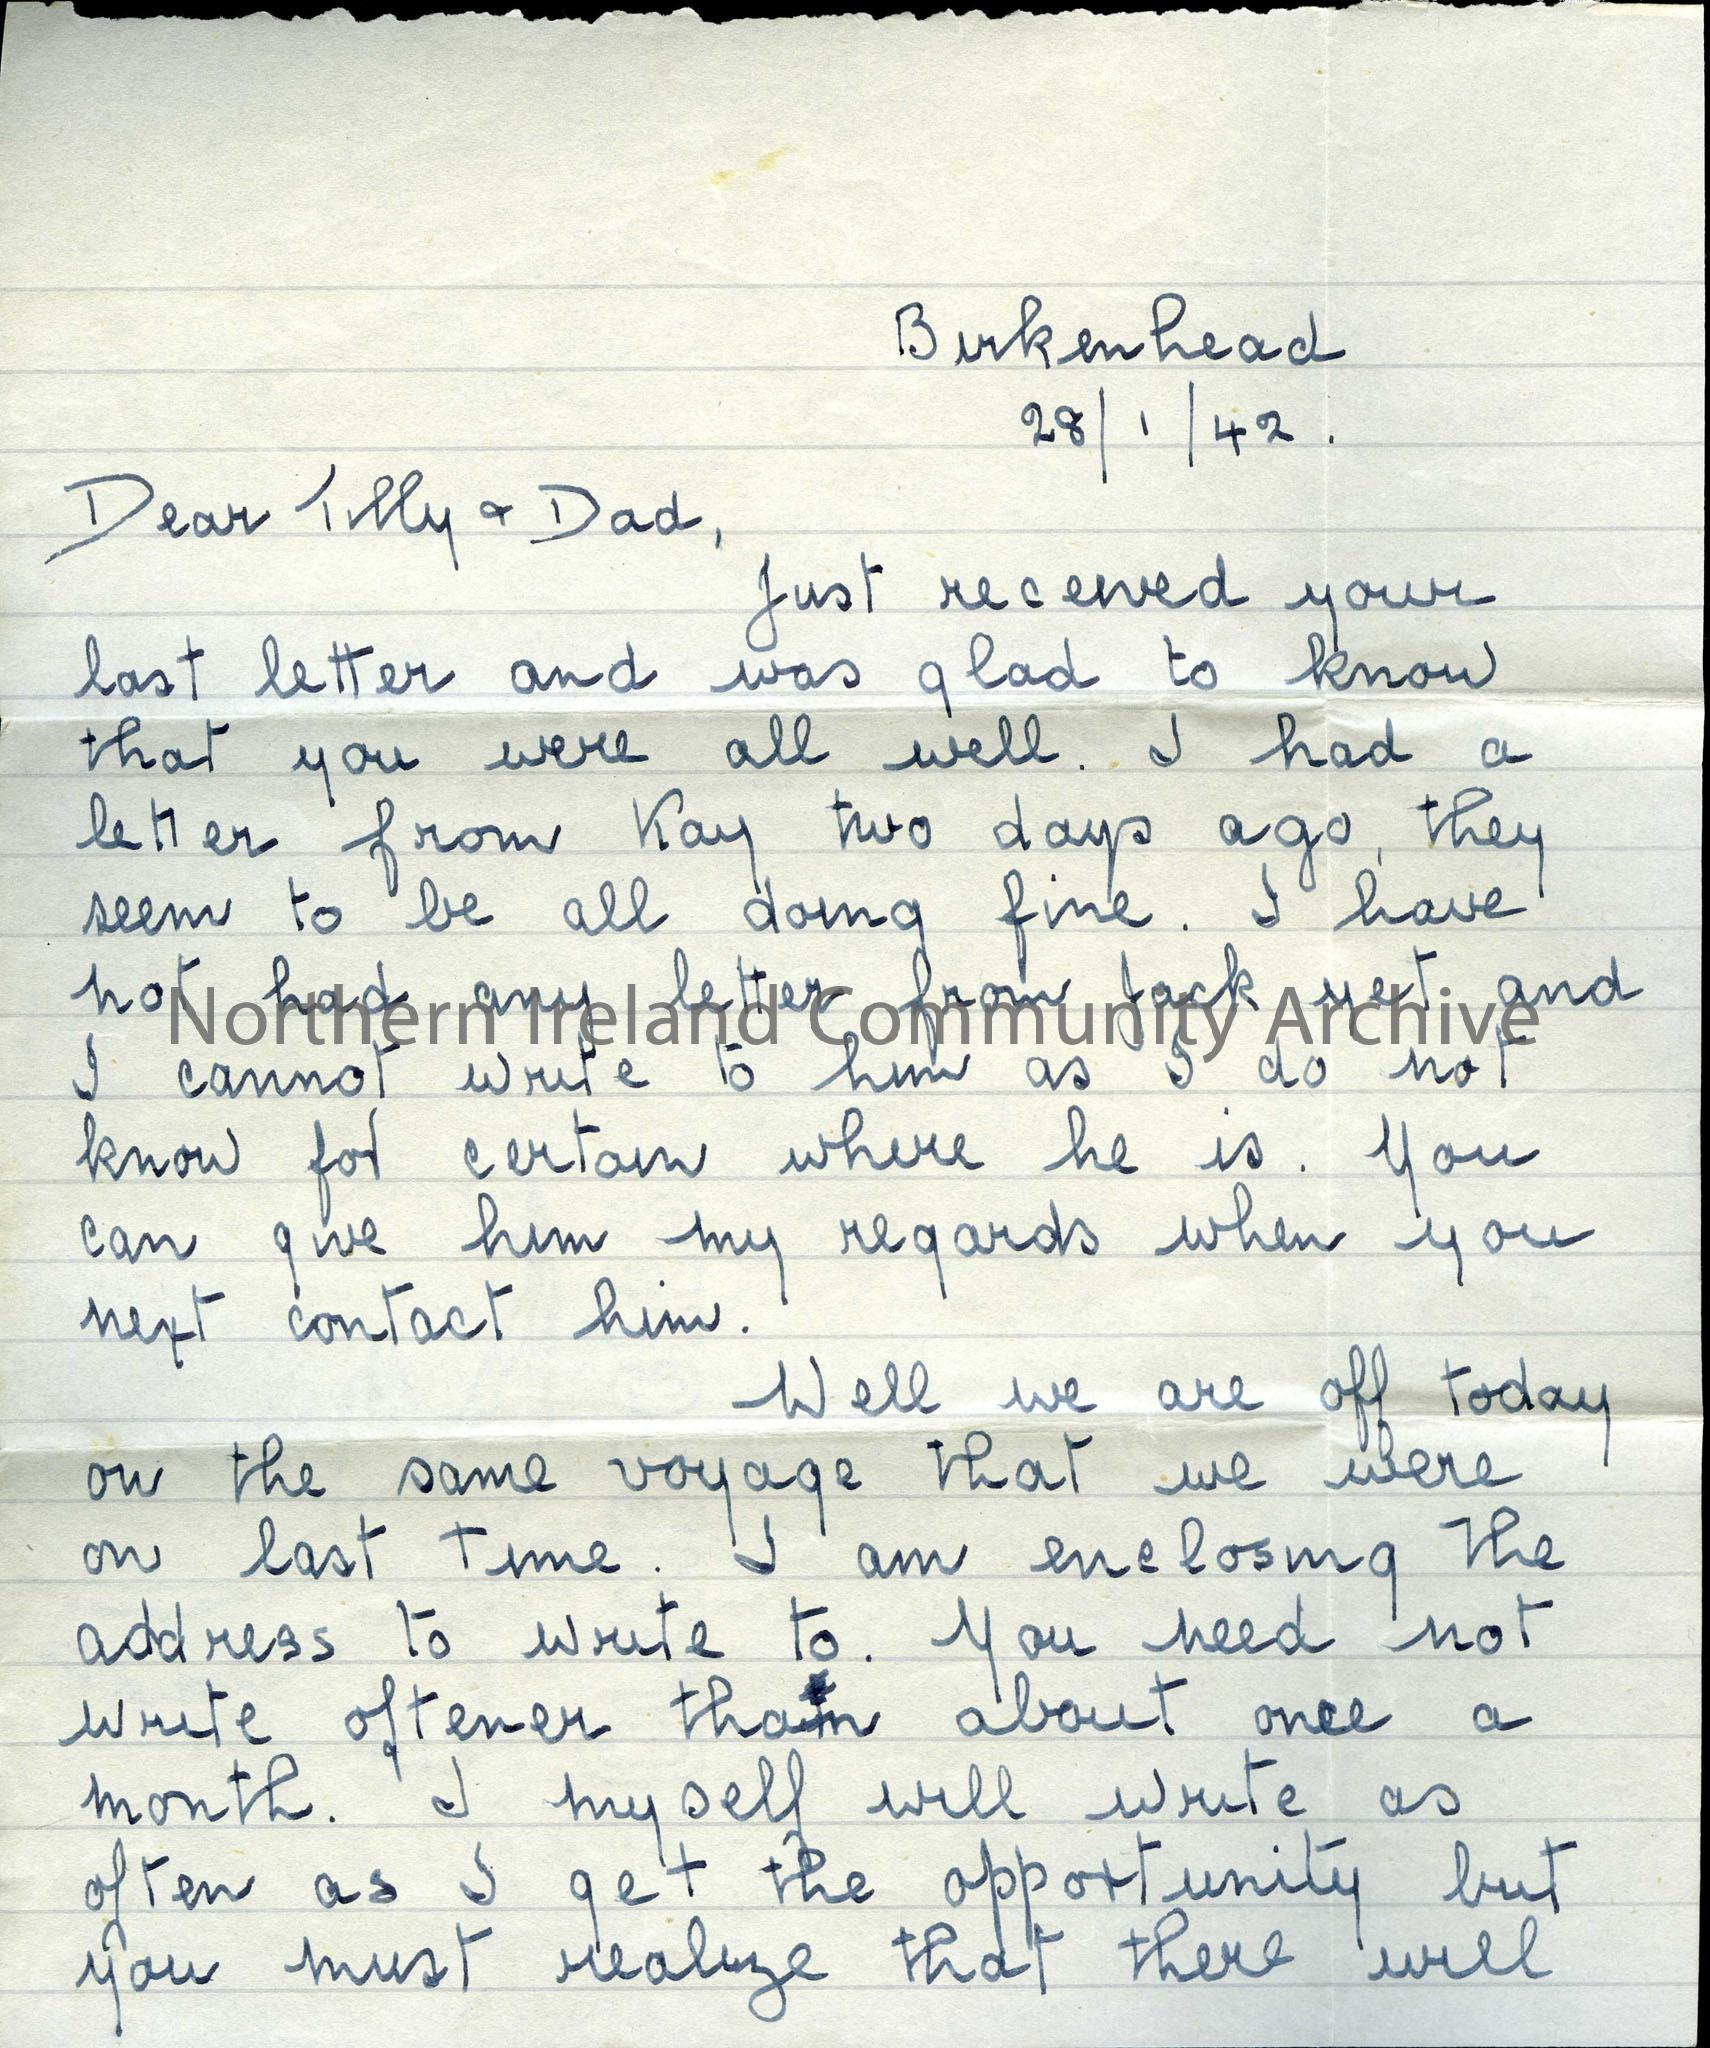 Birkenhead
28/1/42.
Dear Tilly & Dad,
Just received your
last letter and was glad to know
that you were all well. I had a
letter from Kay two days ago, they
seem to be all doing fine. I have
not had any letter from Jack yet and
Northern Ireland Community Archive
I cannot write to him as I do not
know for certain where he is. You
can give him my regards when you
next contact him.
Well we are off today
on the same voyage that we were
on last time. I am enclosing the
address to write to. You need not
write oftener than about once a
month. I myself will write as
often as I get the opportunity but
you must realize that there will